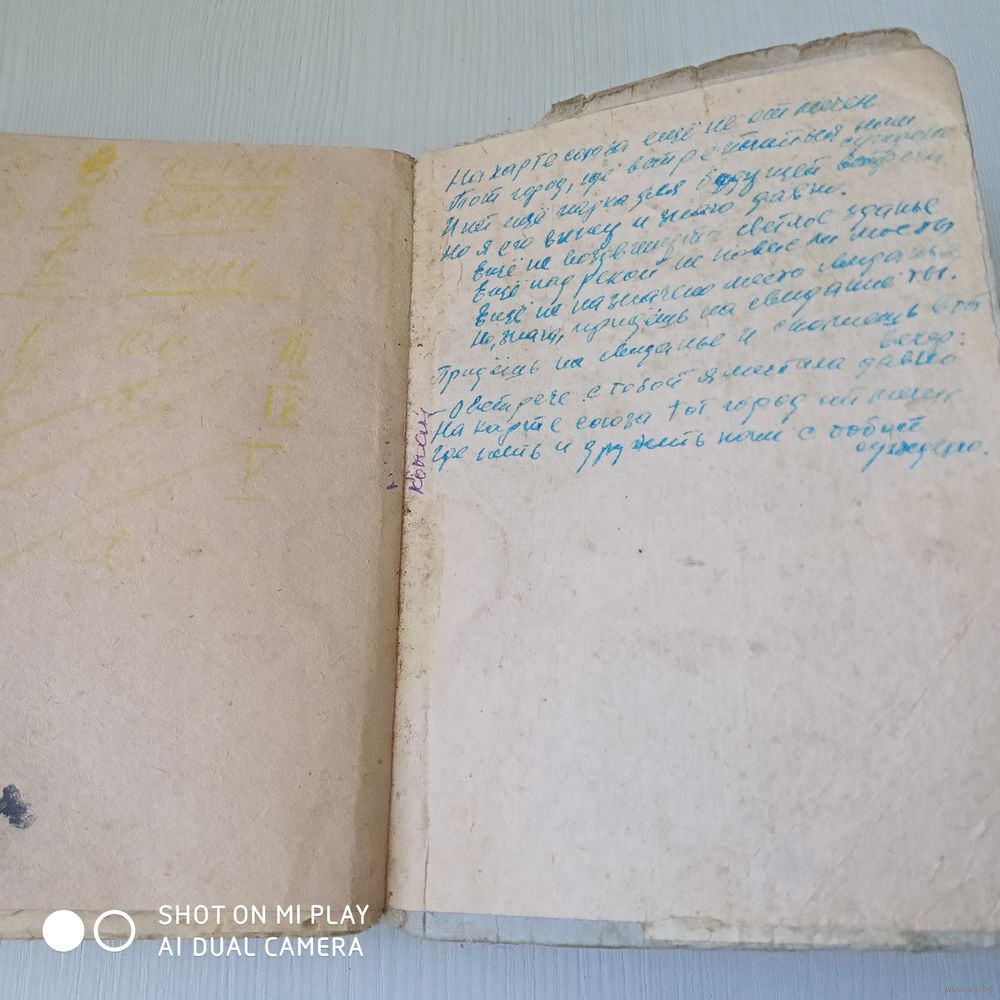 На карте союза ещё не отмечен
Тот город, где встретиться нам суждено
И нет ещё парка для будущей встречи
Но я его вижу и знаю давно.
Ещё не воздвигнуто светлое зданье
Ещё над рекой не повисли мосты
Ещё не назначено место свиданья
Но, знаю, придёшь на свидание ты.
Придёшь на свиданье и скажешь в тот
вечер:
- О встрече с тобой я мечтала давно
На карте союза тот город отмечен
Где жить и дружить нам с тобой
суждено.
SHOT ON MI PLAY
AI DUAL CAMERA